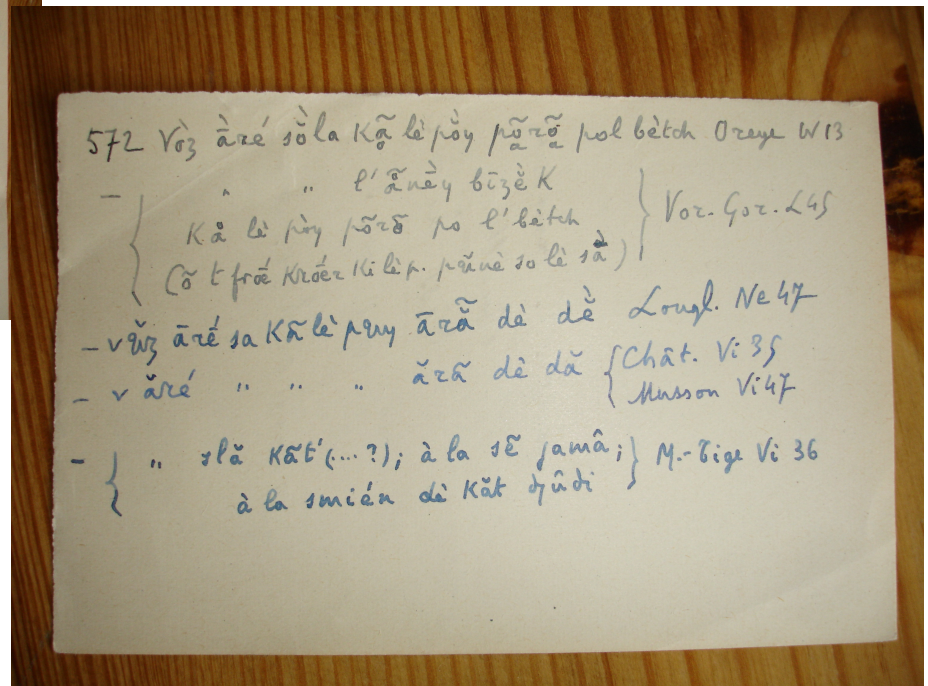 572 Vòz ȁré sȍla Kã̬ lè pȍy põ̬rõ̬ pol bètch Oreye W13
– { " " l'ãnȅy bīzȅK
Kå lè pòy põrõ po l'bètch
(õ t froé Kroér Ki lè p. pũnè so lè sȁ) } Vor. Gor. L45
– vŭz āré sa Kã lè puy ārã dè dȅ Longl. Ne 47
– v ăré " " " ărã dè dã { Chât. Vi 35
Musson Vi 47
– { " slă Kãt' (...?); à la sẽ jamâ;
à la smién dè Kăt djûdi } M.-Tige Vi 36